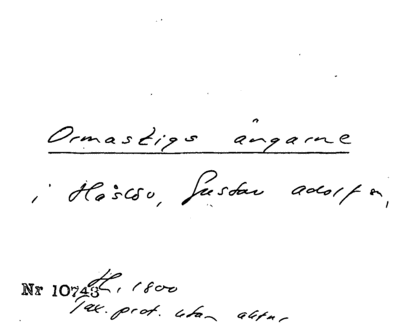 Ormastigs ängarne
i Håslöv, Gustav adolf n,
Nr 10743 H, 1800
Tax. prot. utan aktnr